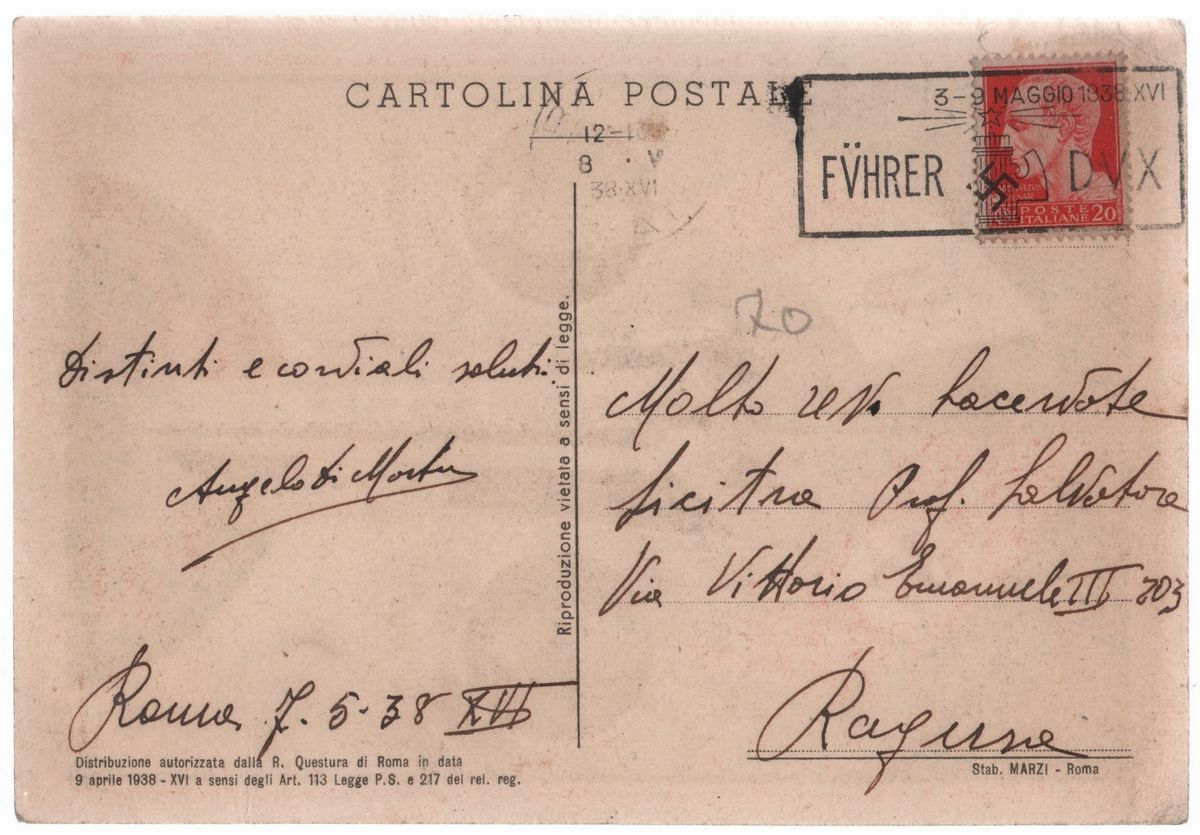 CARTOLINA POSTALE
12-
8 · V
38·XVI
3-9 MAGGIO 1938·XVI
FVHRER DVX
POSTE
ITALIANE 20
70
Distinti e cordiali saluti
Angelo Di
Roma 7.5-38 XVI
Distribuzione autorizzata dalla R. Questura di Roma in data
9 aprile 1938 - XVI a sensi degli Art. 113 Legge P.S. e 217 del rel. reg.
Riproduzione vietata a sensi di legge.
Molto Sacerdote
Licitra Prof. Salvatore
Via Vittorio Emanuele III 703
Ragusa
Stab. MARZI - Roma